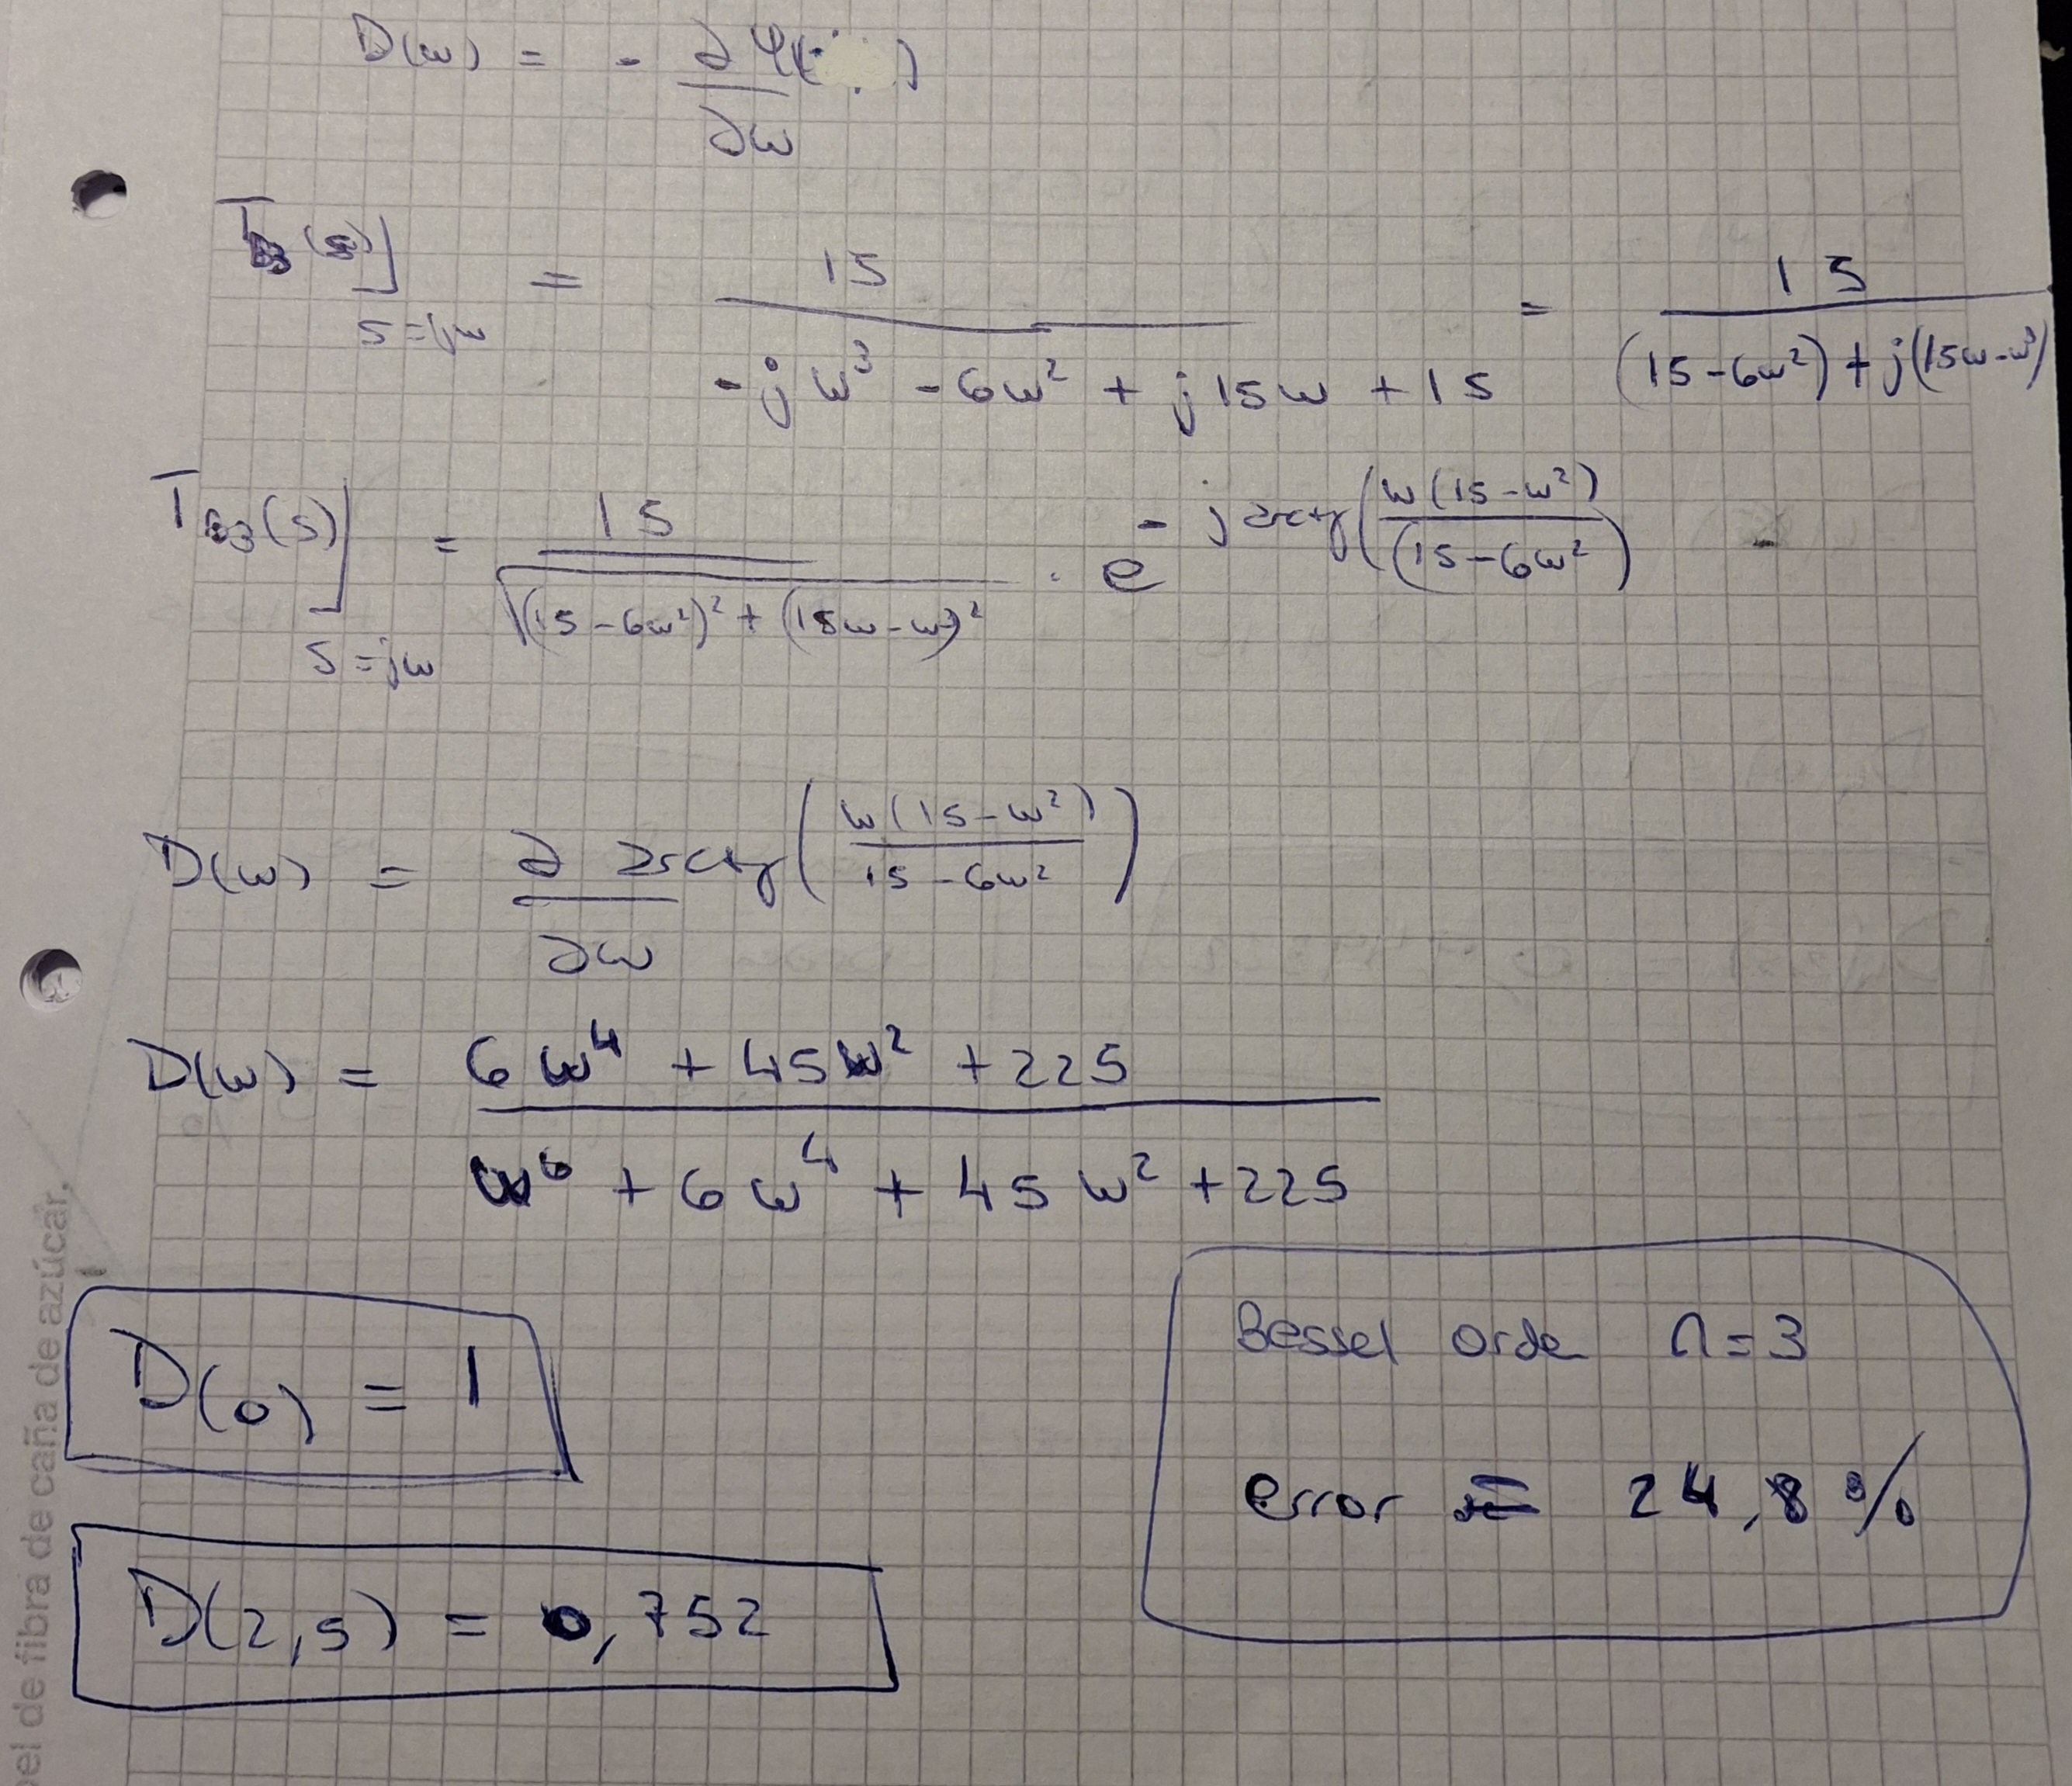 D(ω) = - ∂φ( ) / ∂ω
T_B3(s)]_{s=jω} = 15 / (-jω³ - 6ω² + j15ω + 15) = 15 / ((15-6ω²) + j(15ω-ω³))
T_B3(s)]_{s=jω} = 15 / √((15-6ω²)² + (15ω-ω³)²) · e^{-j arctg(ω(15-ω²) / (15-6ω²))}
D(ω) = ∂ arctg(ω(15-ω²) / (15-6ω²)) / ∂ω
D(ω) = (6ω⁴ + 45ω² + 225) / (ω⁶ + 6ω⁴ + 45ω² + 225)
D(0) = 1
D(2,5) = 0,752
Bessel orden n=3
error = 24,8 %
pel de fibra de caña de azúcar.